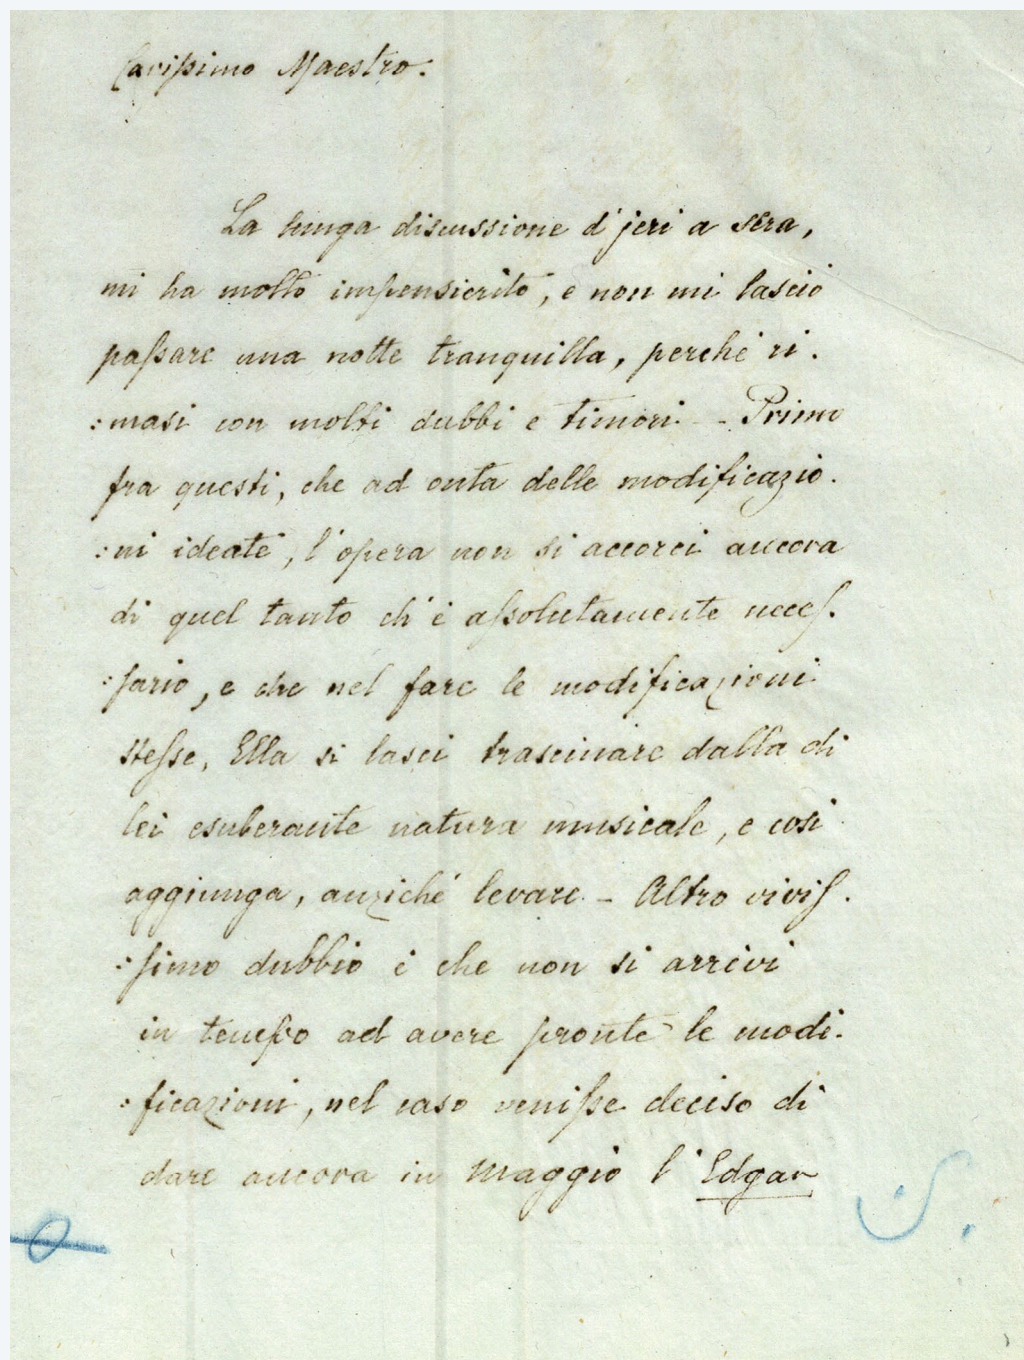 Carissimo Maestro.
La lunga discussione d'jeri a sera,
mi ha molto impensierito, e non mi lasciò
passare una notte tranquilla, perchè ri.
:masi con molti dubbi e timori – Primo
fra questi, che ad onta delle modificazio.
:ni ideate, l'opera non si accorci ancora
di quel tanto ch'è assolutamente neces.
:sario, e che nel fare le modificazioni
stesse, Ella si lasci trascinare dalla di
lei esuberante natura musicale, e così
aggiunga, anziché levare – Altro vivis.
:simo dubbio è che non si arrivi
in tempo ad avere pronte le modi.
:ficazioni, nel caso venisse deciso di
dare ancora in Maggio l'Edgar